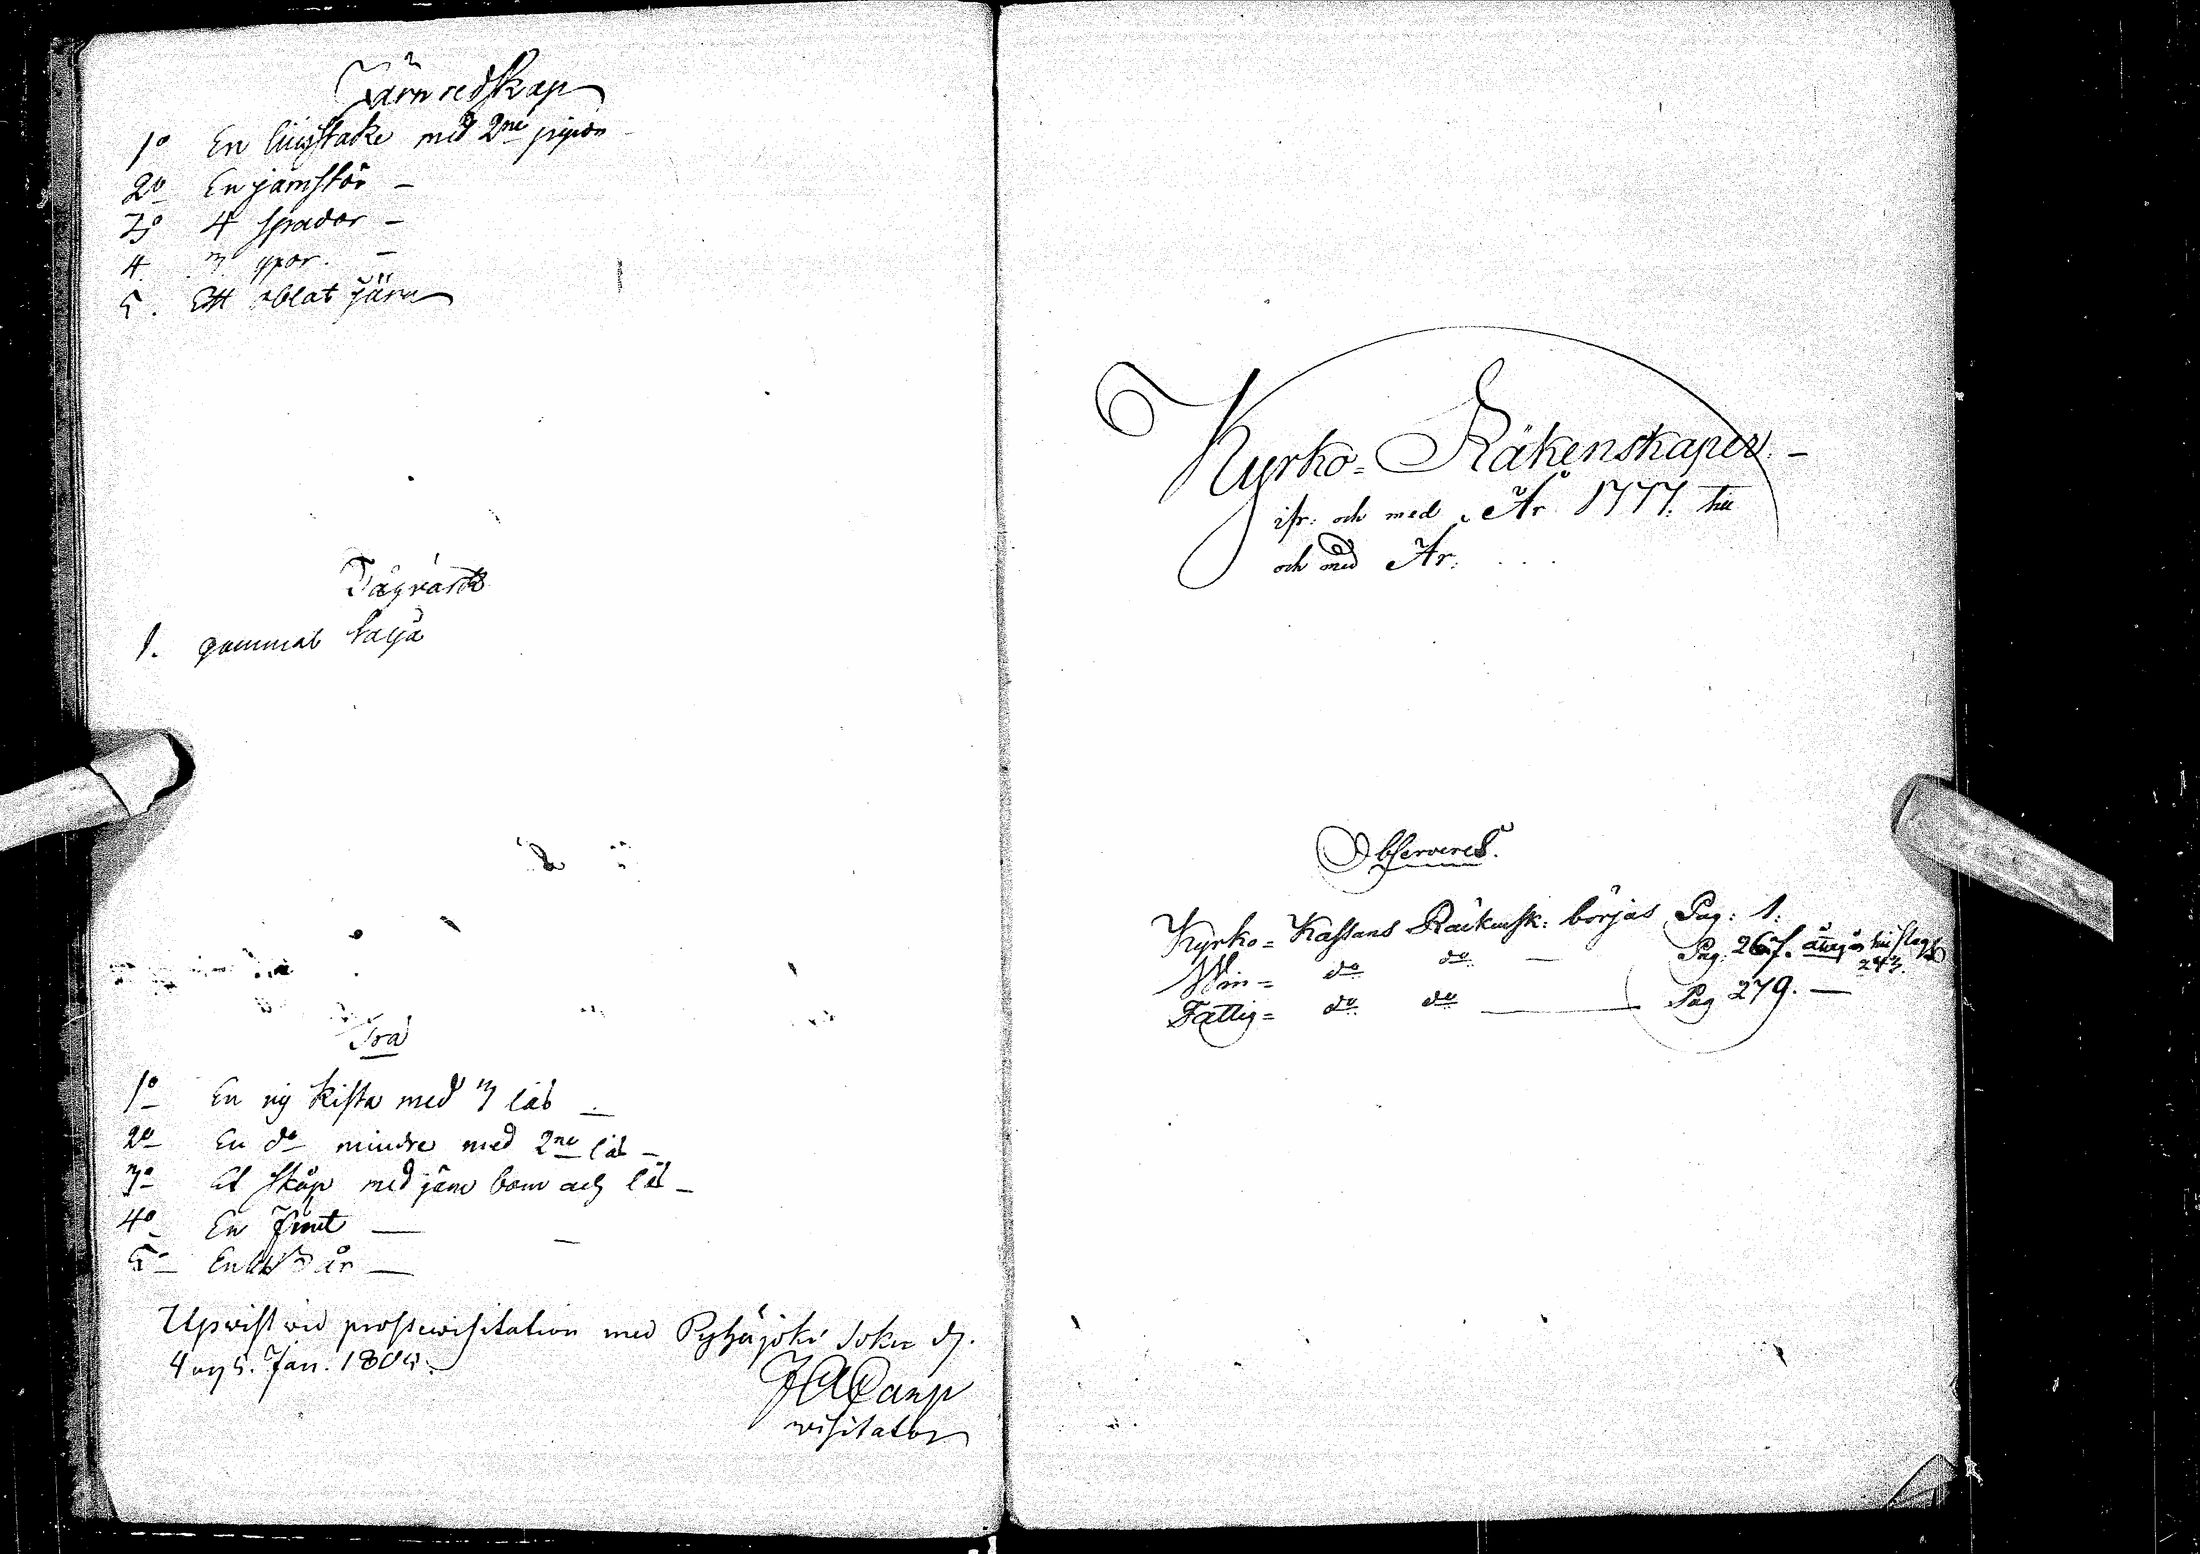 Järnredskap
1o En liusstake med 2ne pipor
2o En järnstör —
3o 4 spador —
4. 3 —
5. Ett oblat järn
Tågvärke
1. gammal talja
Trä
1o En ny kista med 3 lås —
2o En do mindre med 2ne lås —
3o Et skåp med järn bom och lås —
4o En —
5o
Upvist vid prostevisitation med Pyhäjoki sokn d.
4 og 5. Jan. 1804.
visitator
Kyrko= Räkenskaper. —
ifr: och med År 1777. till
och med År. . . .
Observeres.
Kyrko= Kassans Räkensk: börjas Pag: 1.
Win= do do — Pag. 267. 243.
Fattig= do do — Pag 279. —